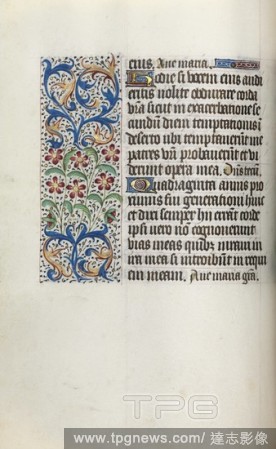 eius. Aue maria.
Hodie si vocem eius audi
eritis nolite obdurare corda
vr̄a sicut in exacerbatione se
cundū diem temptationis ī
deserto ubi temptauerūt me
patres vr̄i probauerūt et vi
derunt opera mea. Dn̄s tecū.
Quadraginta annis pro
ximus fui generationi huic
et dixi semper hii errāt corde
ipsi vero nō cognouerunt
vias meas quibȝ iuraui in
ira mea si introibunt in requi
em meam. Aue maria gr̄a.
TPG
www.tpgnews.com/ 達志影像